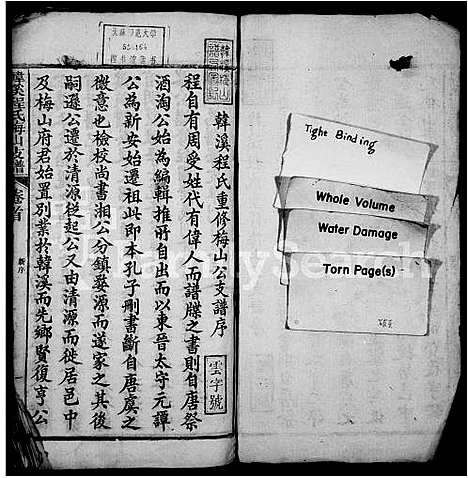 韓溪程氏重修梅山公支譜序
雲字號
程自有周受姓代有偉人而譜牒之書則自唐祭
酒淘公始為編輯推所自出而以東晉太守元譚
公為新安始遷祖此即本孔子刪書斷自唐虞之
微意也檢校尚書湘公分鎮婺源而遂家之其後
嗣遜公遷於清源從起公又由清源而徙居邑中
及梅山府君始置別業於韓溪而先鄉賢復亨公
韓溪程氏梅山支譜
卷首
新序
Tight Binding
Whole Volume
Water Damage
Torn Page(s)
FamilySearch